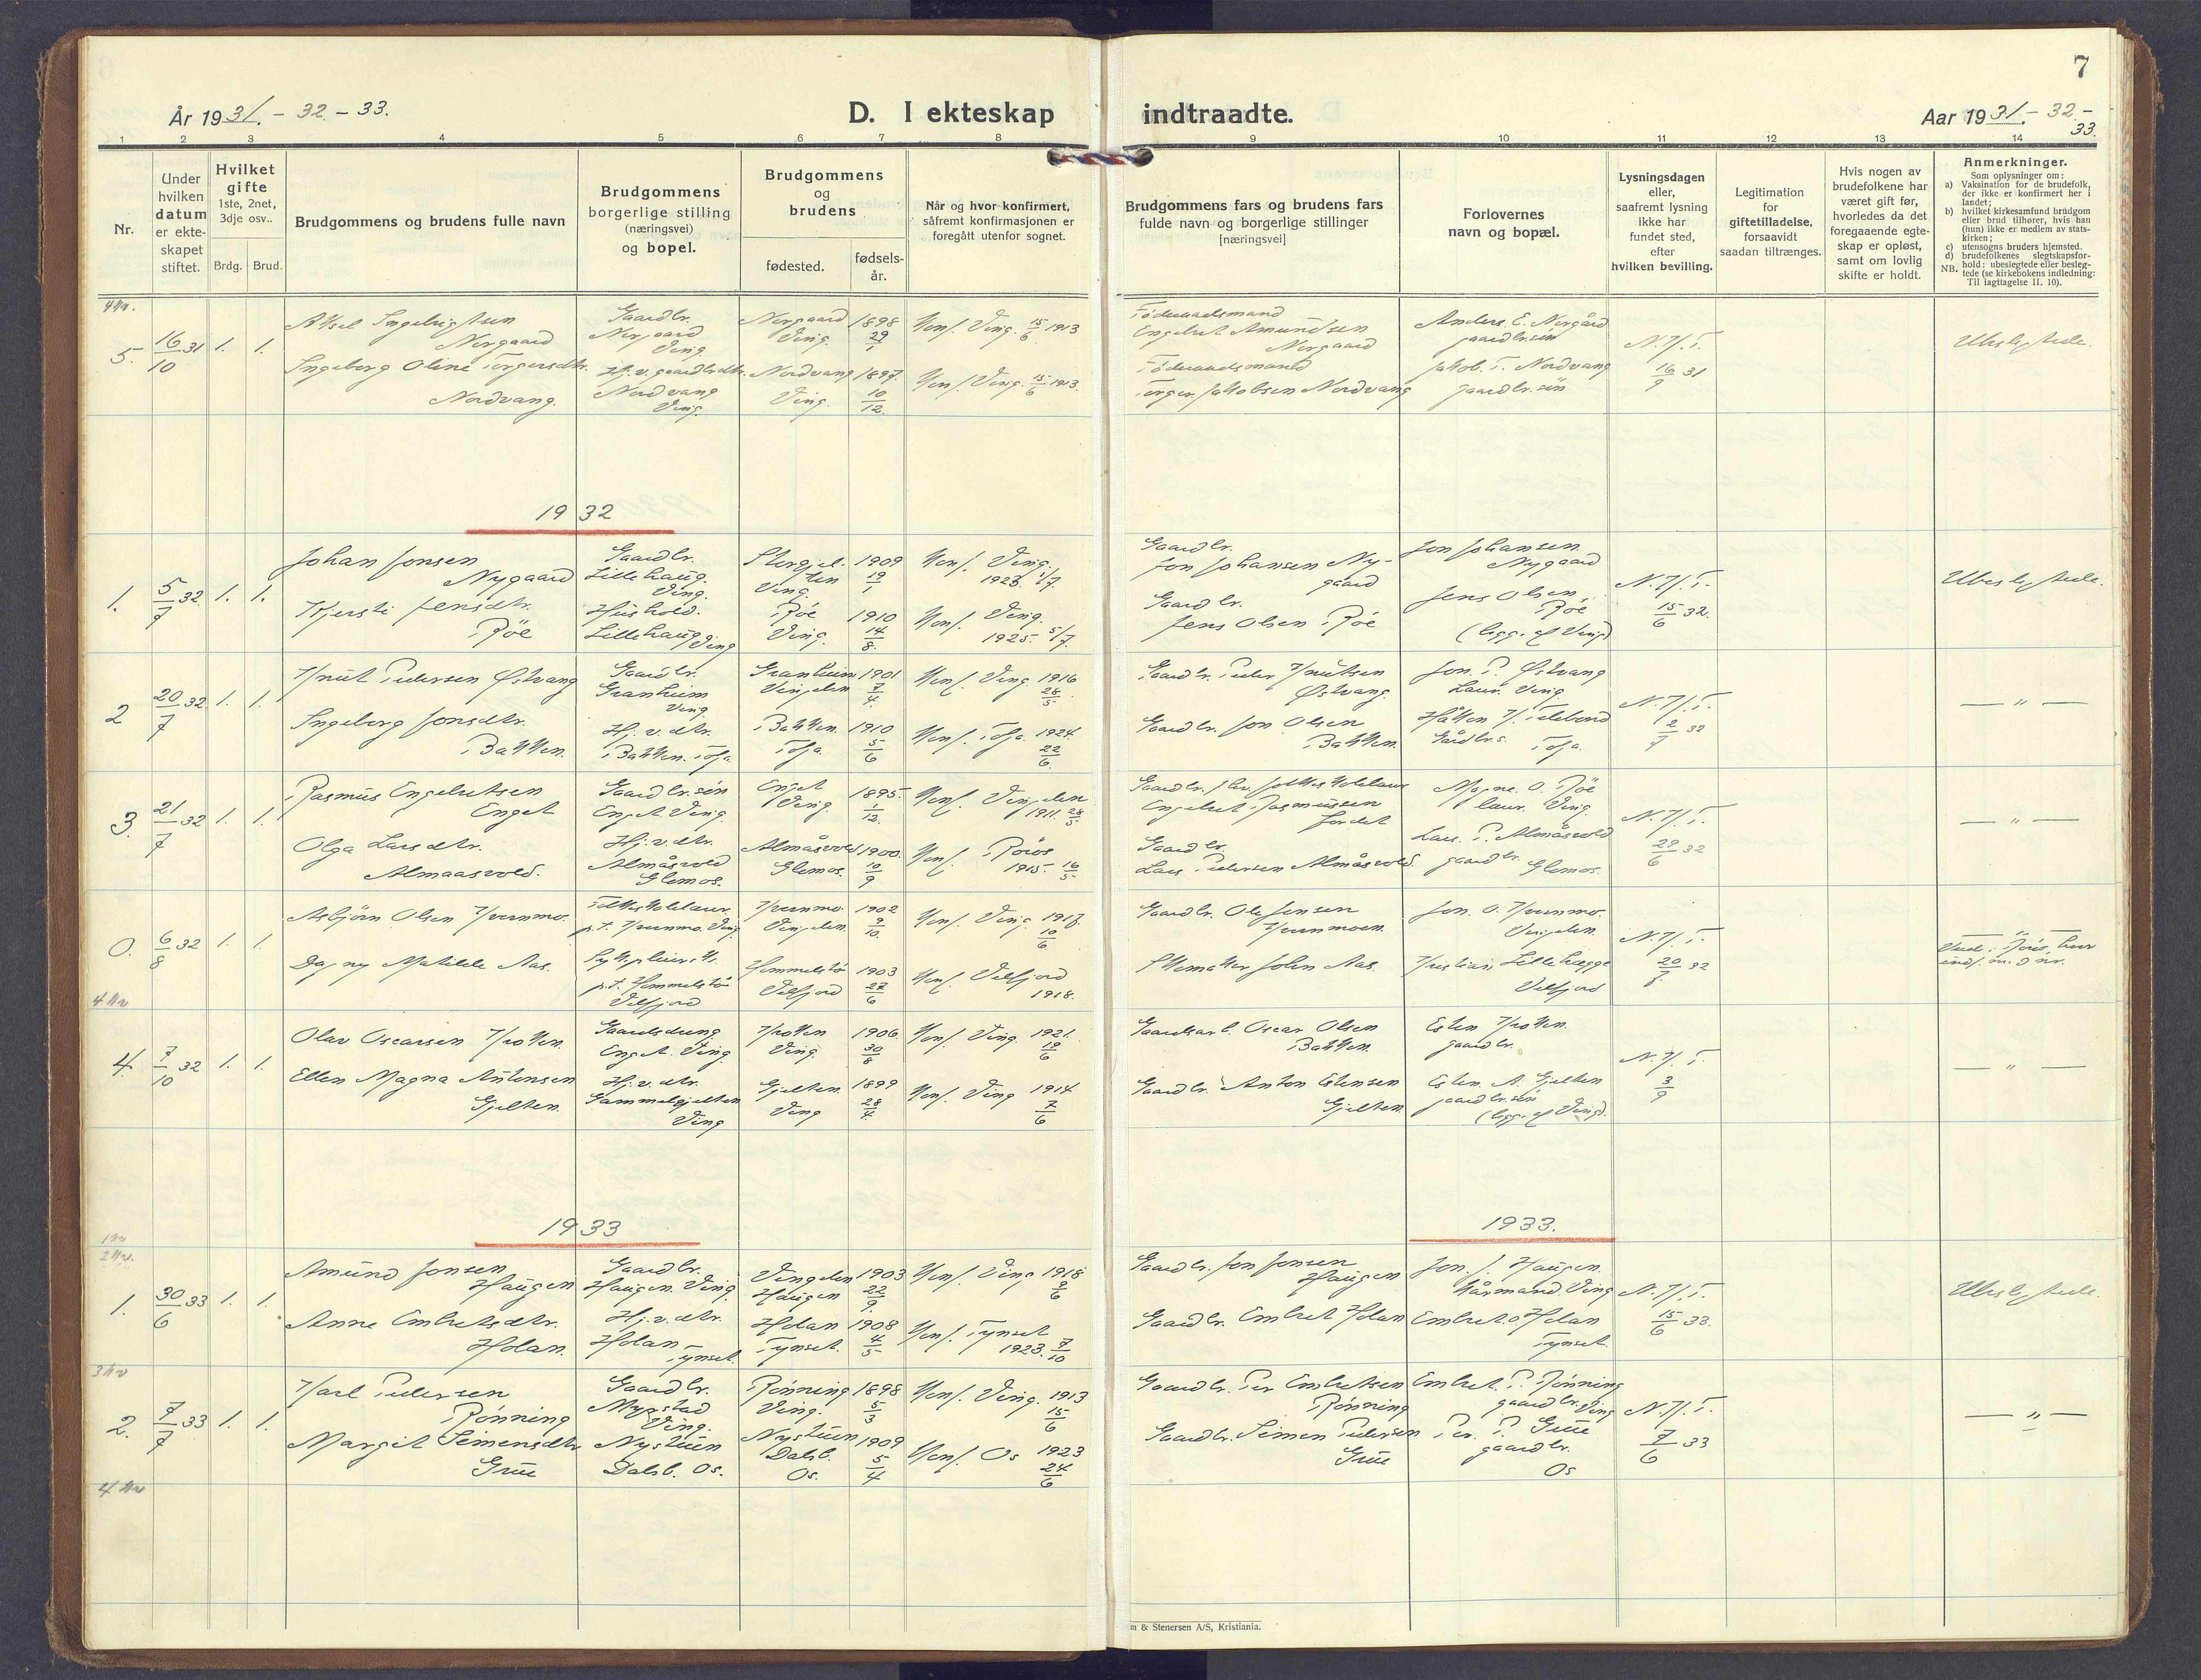 7
År 1931. - 32 - 33.
D. I ekteskap
indtraadte.
Aar 1931. - 32 - 33.
1 2 3 4 5 6 7 8
9 10 11 12 13 14
Nr.
Under hvilken datum er ekteskapet stiftet.
Hvilket gifte 1ste, 2net, 3dje osv..
Brdg. Brud.
Brudgommens og brudens fulle navn
Brudgommens borgerlige stilling (næringsvei) og bopel.
Brudgommens og brudens
fødested.
fødselsår.
Når og hvor konfirmert, såfremt konfirmasjonen er foregått utenfor sognet.
Brudgommens fars og brudens fars fulde navn og borgerlige stillinger [næringsvei]
Forlovernes navn og bopæl.
Lysningsdagen eller, saafremt lysning ikke har fundet sted, efter hvilken bevilling.
Legitimation for giftetilladelse, forsaavidt saadan tiltrænges.
Hvis nogen av brudefolkene har været gift før, hvorledes da det foregaaende egteskap er opløst, samt om lovlig skifte er holdt.
Anmerkninger.
Som oplysninger om:
a) Vaksination for de brudefolk, der ikke er konfirmert her i landet;
b) hvilket kirkesamfund brudgom eller brud tilhører, hvis han (hun) ikke er medlem av statskirken;
c) utensogns bruders hjemsted.
d) brudefolkenes slegtskapsforhold: ubeslegtede eller beslegtede (se kirkebokens indledning: Til iagttagelse II. 10).
NB.
5. 16/10 31 1. 1.
Nergaard
Gaardbr. Nergaard Ving
Nergaard Ving. 1898 29/1
Konf. Ving. 15/6 1913
Födoraadsmand
Engebret Amundsen Nergaard
Anders E. Nergård
gaardbr.sön
N.K.T. 16/9 31
Ubeslegtede.
Ingeborg Oline Torgersdtr. Nordvang.
Hj. v. gaardbrdtr. Nordvang Ving.
Nordvang Ving. 1897. 10/12
Konf. Ving. 15/6 1913.
Födoraadsmand
Torger Jakobsen Nordvang
Jakob. T. Nordvang
gaardbr. sön
1932
1. 5/7 32 1. 1.
Johan Jonsen Nygaard
Gaardbr. Lillehaug. Ving.
Ving. 1909 19/1
Konf. Ving. 1923. 1/7
Gaardbr. Jon Johansen Nygaard
Jon Johansen Nygaard
N.K.T. 15/6 32.
Ubeslegtede.
Kjersti Jensdtr. Röe
Hushold. Lillehaug Ving
Röe Ving. 1910 14/8
Konf. Ving. 1925. 5/7
Gaardbr. Jens Olsen Röe
Jens Olsen, Röe
(begge af Ving)
2 20/7 32 1. 1.
Knut Pedersen Østvang
Gaardbr. Granheim Ving
Granheim Vingelen 1901 7/4
Konf. Ving. 1916 28/5
Gaardbr. Peder Knutsen Østvang.
Jon. P. Østvang
Ving.
N.K.T. 2/7 32
— " —
Ingeborg Jonsdtr. Bakken.
Hj. v. dtr. Bakken. Tolga
Bakken. Tolga. 1910 5/6
Konf. Tolga. 1924. 22/6
Gaardbr. Jon Olsen Bakken.
Gårdbr.s. Tolga.
3. 21/7 32 1. 1.
Rasmus Engebretsen Enget
Gaardbr.sön Enget Ving.
Enget Ving 1895. 1/12
Konf. Vingelen 1911. 28/5
Engebret Rasmussen Jordet
Magne. O. Röe
Ving.
N.K.T. 29/6 32
— " —
Olga Larsdtr. Almaasvold.
Hj. v. dtr. Almåsvold Glåmos.
Almåsvold Glåmos. 1900. 10/9
Konf. Röros 1915. 16/5
Gaardbr. Lars Pedersen Almåsvold
Lars. P. Almåsvold
gaardbr. Glåmos.
0. 6/8 32 1. 1.
Asbjörn Olsen Kvernmo.
p.t. Kvernmo. Ving.
Kvernmo. Vingelen. 1902 9/10.
Konf. Ving. 1917. 10/6
Gaardbr. Ole Jonsen Kvernmoen.
Jon. O. Kvernmo. Vingelen.
N.K.T. 20/7 32
Dagny Matilde Aas.
p.t. Hommelstö Velfjord
Hommelstö Velfjord 1903 27/6
Konf. Velfjord 1918.
Skomaker John Aas.
Velfjord
4. 7/10 32 1. 1.
Olav Oscarsen Kroken.
Enget. Ving.
Kroken Ving. 1906. 30/8
Konf. Ving. 1921. 19/6
Gaardsarb. Oscar Olsen Bakken.
Esten Kroken.
gaardbr.
N.K.T. 3/9
— " —
Ellen Magna Antonsen Gjelten.
Hj. v. dtr. Gammelgjelten Ving
Gjelten. Ving 1899 28/4
Konf. Ving 1914 7/6
Gaardbr. Anton Estensen Gjelten
Esten. A. Gjelten
gaardbr. sön
(begge af Ving).
1933
1933.
1. 30/6 33 1. 1.
Amund Jonsen Haugen
Gaardbr. Haugen. Ving.
Vingelen Haugen 1903 22/9.
Konf. Ving 1918 9/6
Gaardbr. Jon Jonsen Haugen
Jon. J. Haugen.
Ving
N.K.T. 15/6 33.
Ubeslegtede.
Anne Embretsdtr. Holan.
Hj. v. dtr. Holan Tynset.
Holan Tynset. 1908 4/5
Konf. Tynset 1923. 7/10
Gaardbr. Embret Holan
Embret. O. Holan
Tynset.
2. 7/7 33 1. 1.
Karl Pedersen Rönning
Gaardbr. Ving.
Rönning Ving. 1898 5/3
Konf. Ving. 1913 15/6
Gaardbr. Per Embretsen Rönning
Embret. P. Rönning
gaardbr. Ving
N.K.T. 7/6 33
— " —
Margit Simensdtr Grue
Nystuen Dalsb. Os.
Nystuen Dalsb. Os. 1909 5/4
Konf. Os 1923 24/6
Gaardbr. Simen Pedersen Grue
Per. P. Grue
gaardbr.
Os
& Stenersen A/S, Kristiania.